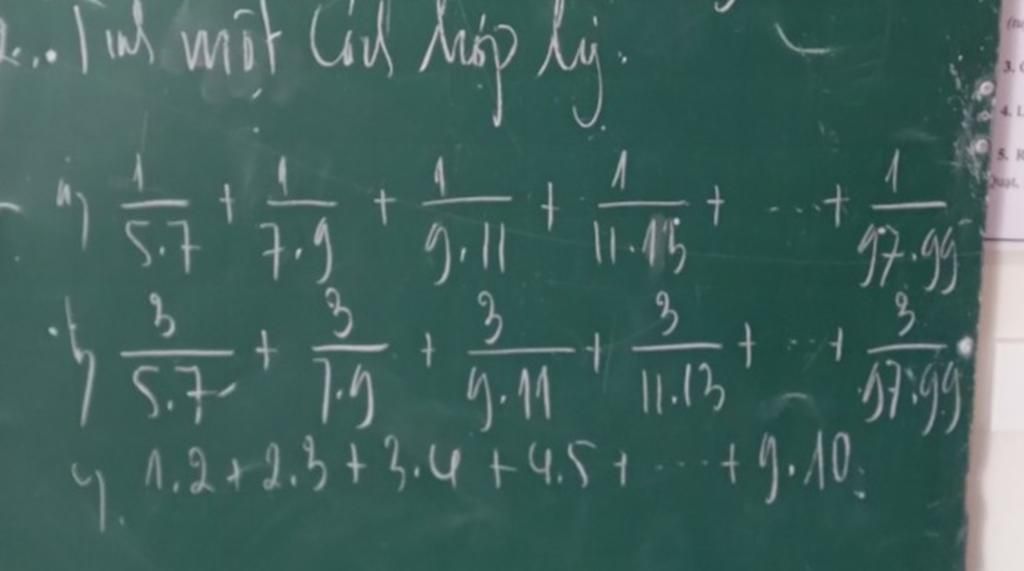 2.. Tính một Cách hợp lý.
a) 1/5.7 + 1/7.9 + 1/9.11 + 1/11.13 + ... + 1/97.99
b) 3/5.7 + 3/7.9 + 3/9.11 + 3/11.13 + ... + 3/97.99
c) 1.2 + 2.3 + 3.4 + 4.5 + ... + 9.10.
3.
4. L
5. R